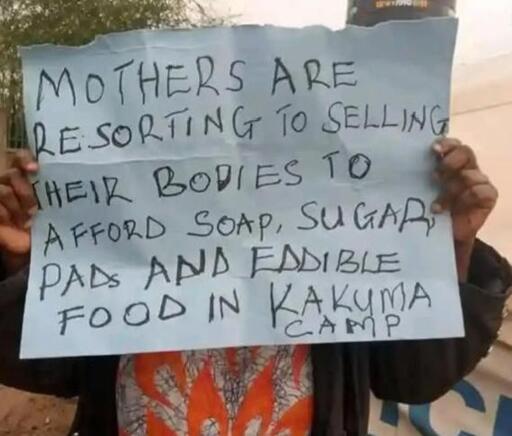 MOTHERS ARE
RESORTING TO SELLING
THEIR BODIES TO
AFFORD SOAP, SUGAR,
PADs AND EDDIBLE
FOOD IN KAKUMA
CAMP